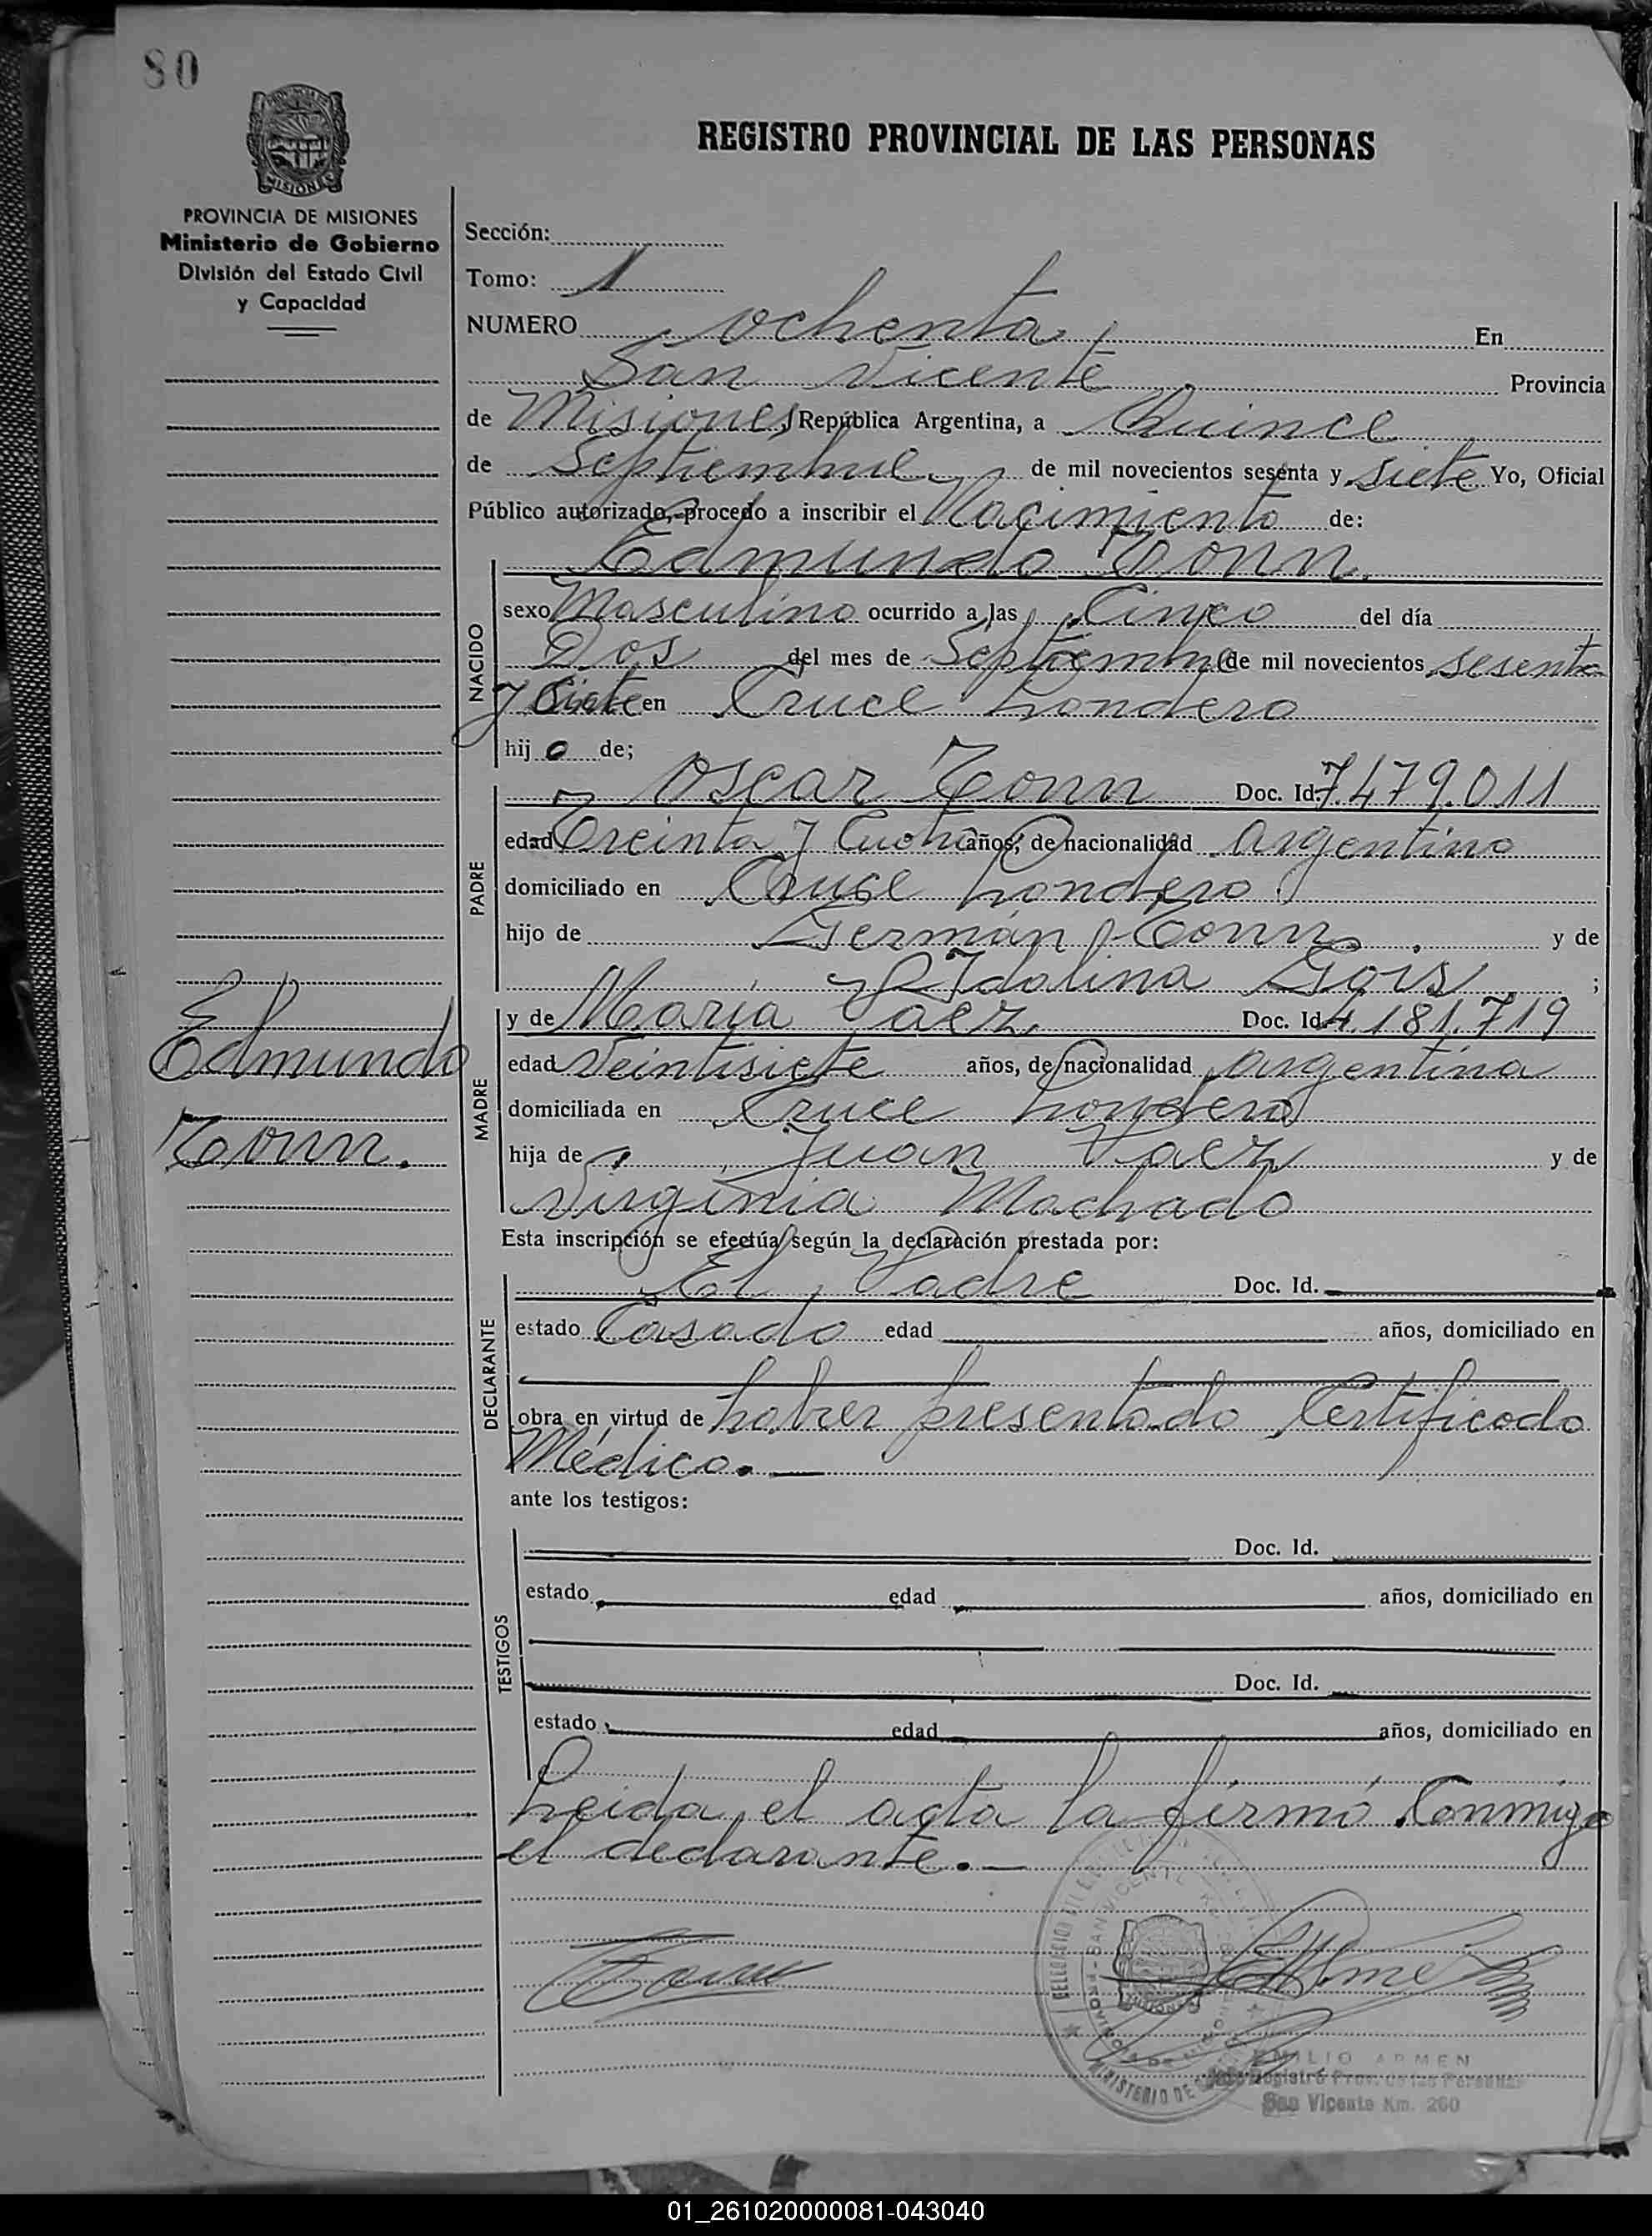 80
MISIONES
PROVINCIA DE MISIONES
Ministerio de Gobierno
División del Estado Civil
y Capacidad
REGISTRO PROVINCIAL DE LAS PERSONAS
Sección:
Tomo: 1
NUMERO ochenta En
San Vicente Provincia
de Misiones, República Argentina, a Quince
de Septiembre de mil novecientos sesenta y siete Yo, Oficial
Público autorizado, procedo a inscribir el Nacimiento de:
Edmundo Tonn.
NACIDO
sexo Masculino ocurrido a las Cinco del día
Dos del mes de Septiembre de mil novecientos sesenta
y Siete en Cruce Londero
hij o de;
PADRE
Oscar Tonn Doc. Id. 7.479.011
edad Treinta y Cuatro años, de nacionalidad argentino
domiciliado en Cruce Londero
hijo de Germán Tonn y de
Idalina Gois ;
MADRE
y de María Paez Doc. Id. 4.181.719
edad Veintisiete años, de nacionalidad argentina
domiciliada en Cruce Londero
hija de Juan Paez y de
Virginia Machado
Edmundo
Tonn.
Esta inscripción se efectúa según la declaración prestada por:
DECLARANTE
El Padre Doc. Id.
estado Casado edad años, domiciliado en
obra en virtud de haber presentado Certificado
Médico.—
ante los testigos:
TESTIGOS
Doc. Id.
estado edad años, domiciliado en
Doc. Id.
estado edad años, domiciliado en
Leida el acta la firmó Conmigo
el declarante.—
Tonn
SAN VICENTE
MINISTERIO DE
EMILIO ARMEN
Jefe Registro Prov. de las Personas
San Vicente Km. 260
01_261020000081-043040